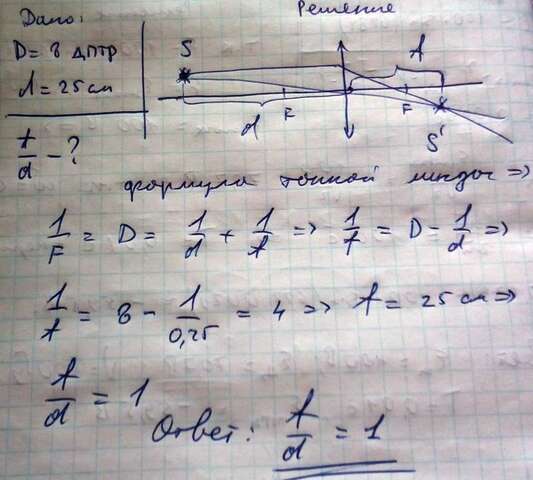 Дано:
D = 8 дптр
f = 25 см
f/d - ?
Решение
S
F
d
f
F
S'
формула тонкой линзы =>
1/F = D = 1/d + 1/f => 1/f = D - 1/d =>
1/f = 8 - 1/0,25 = 4 => f = 25 см =>
f/d = 1
Ответ: f/d = 1